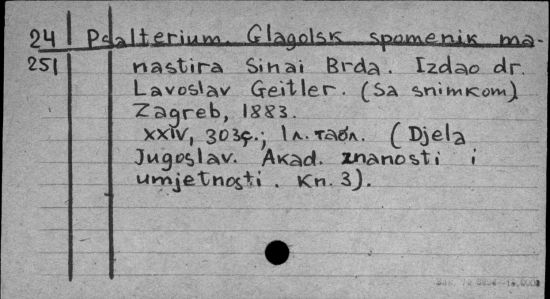 24 Psalterium. Glagolsk spomenik ma-
251 nastira Sinai Brda. Izdao dr.
Lavoslav Geitler. (Sa snimkom)
Zagreb, 1883.
XXIV, 303ς.; 1л. табл. (Djela
Jugoslav. Akad. znanosti i
umjetnosti. Kn. 3).